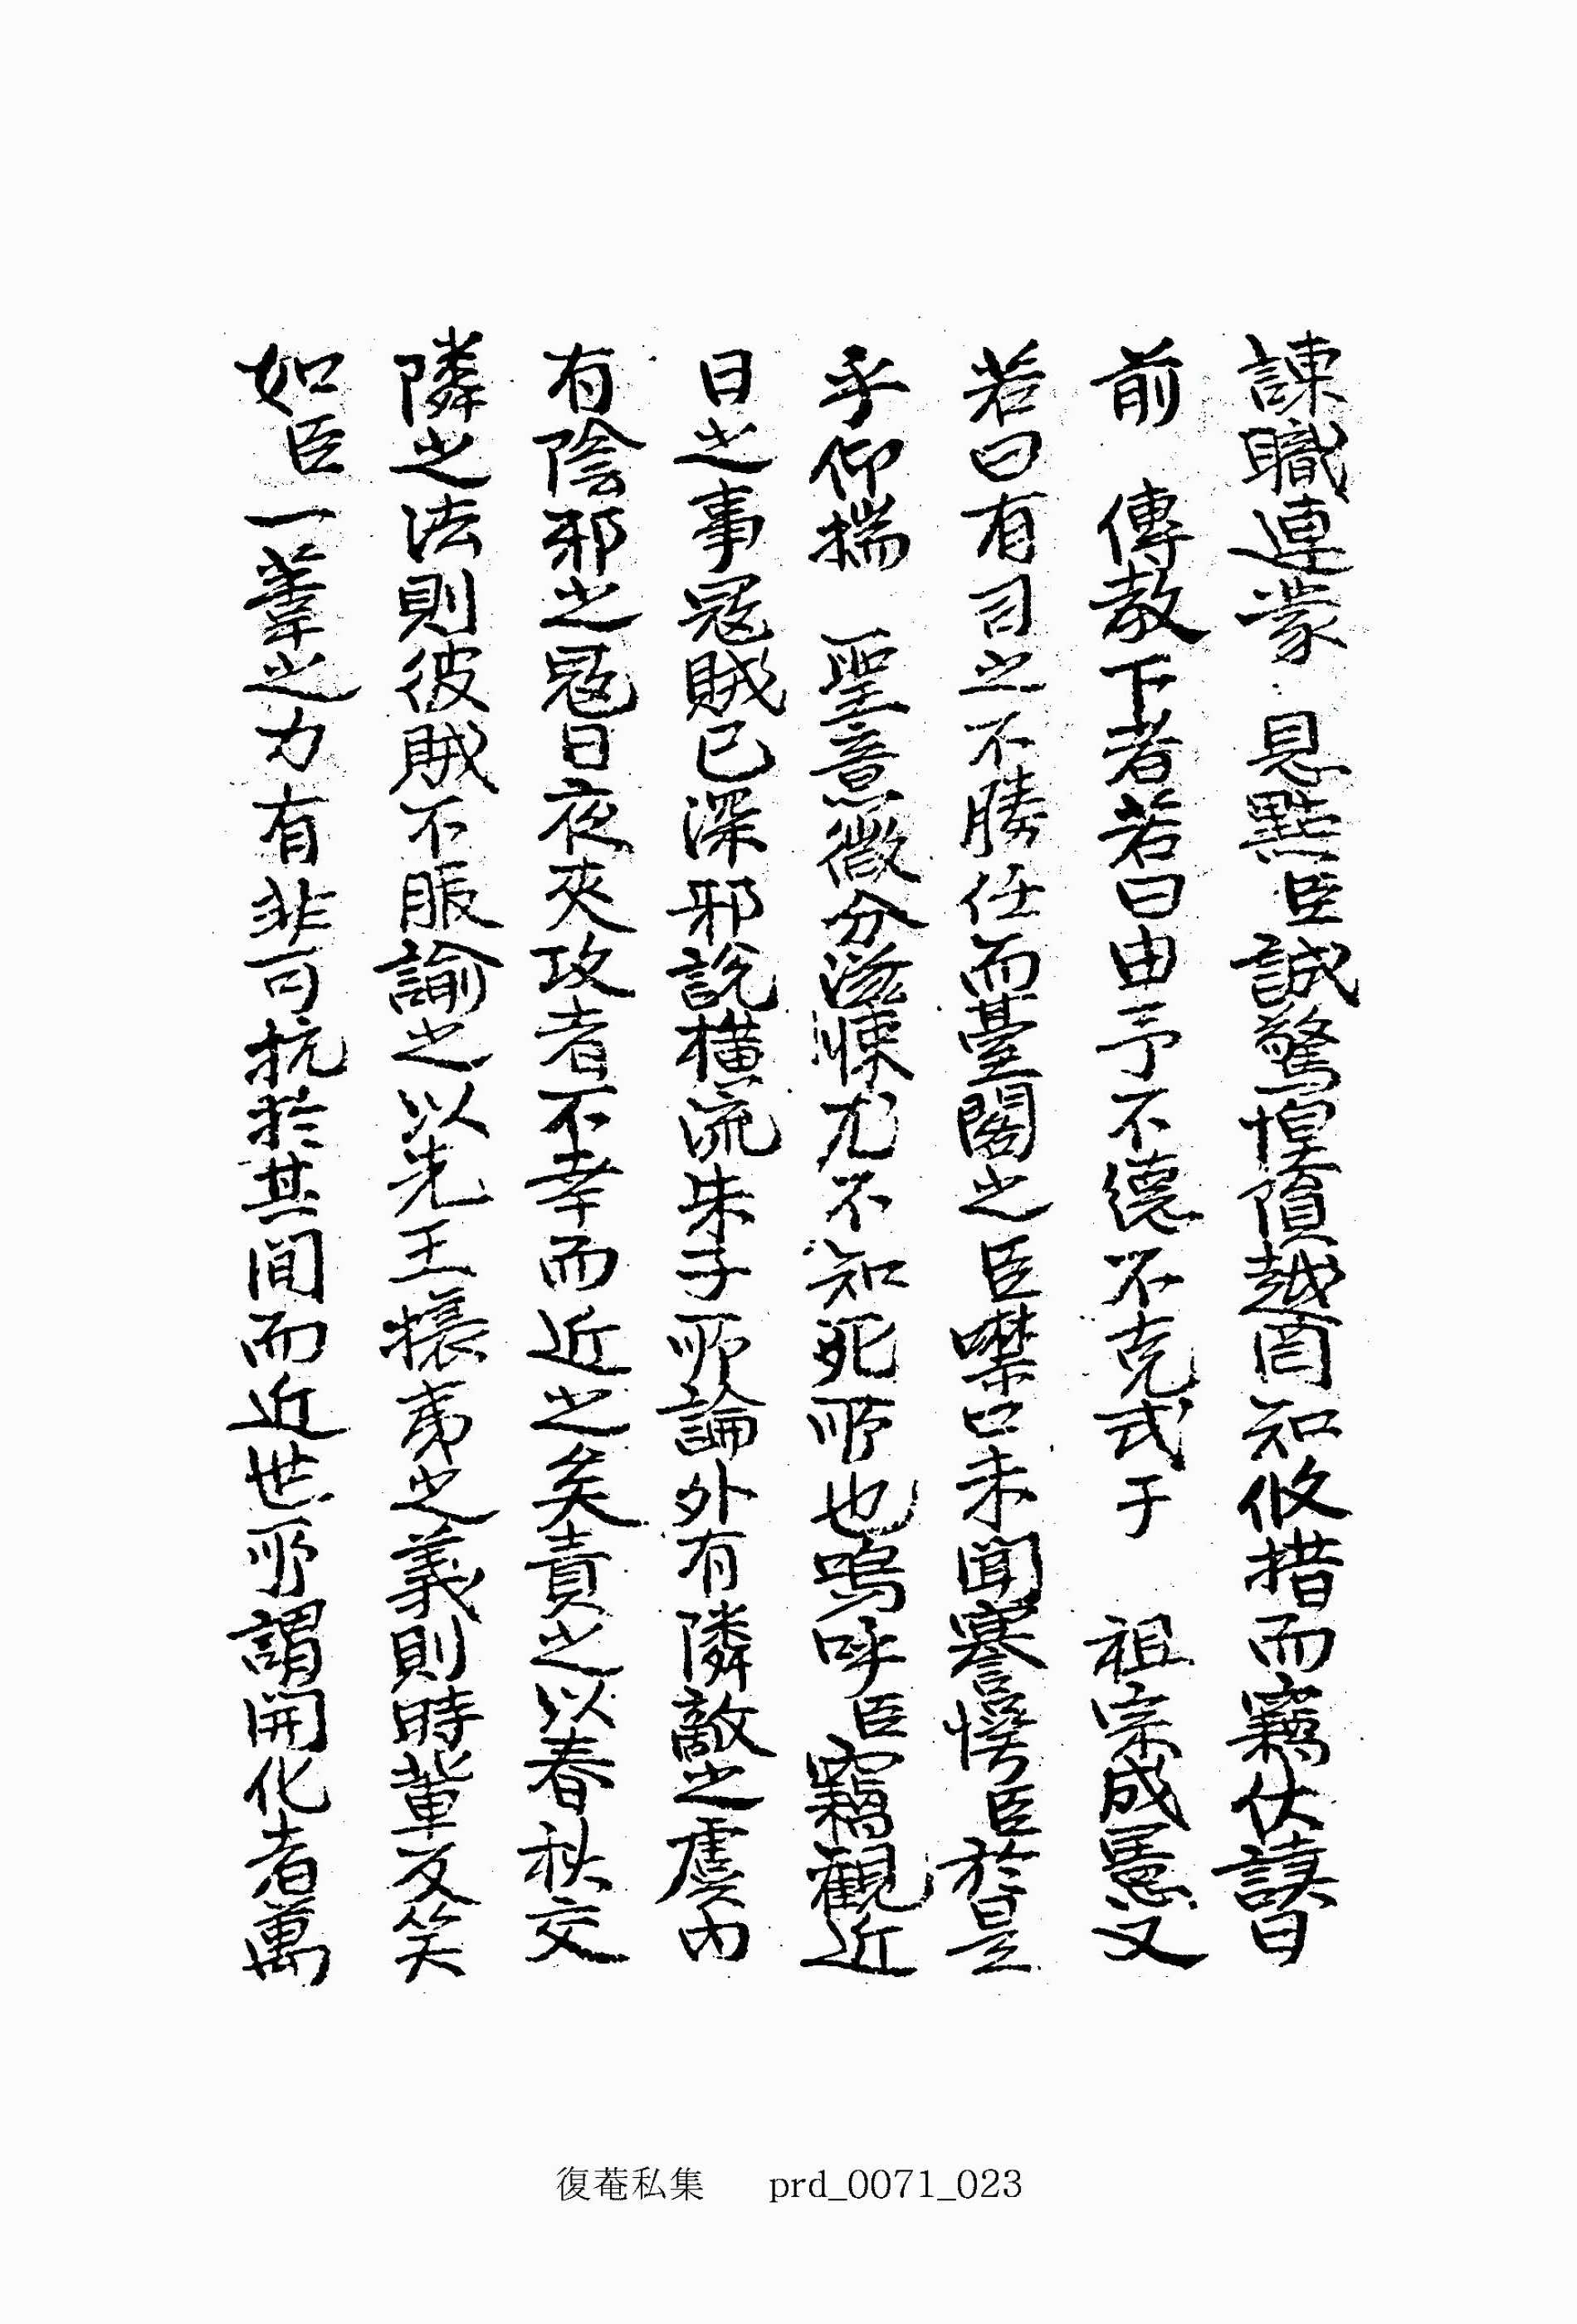 諫職連蒙 恩點臣誠驚惶隕越罔知攸措而竊伏讀日
前 傳教下者若曰由予不德不克式于 祖宗成憲又
若曰有司之不勝任而臺閣之臣噤口未聞謇愕臣於是
乎仰揣 聖意微分滋悚尤不知死所也嗚呼臣竊觀近
日之事寇賊已深邪說橫流朱子所論外有隣敵之虞內
有陰邪之寇日夜夾攻者不幸而近之矣責之以春秋交
隣之法則彼賊不服諭之以先王攘夷之義則時輩反笑
如臣一葦之力有非可抗於其間而近世所謂開化者萬
復菴私集 prd_0071_023